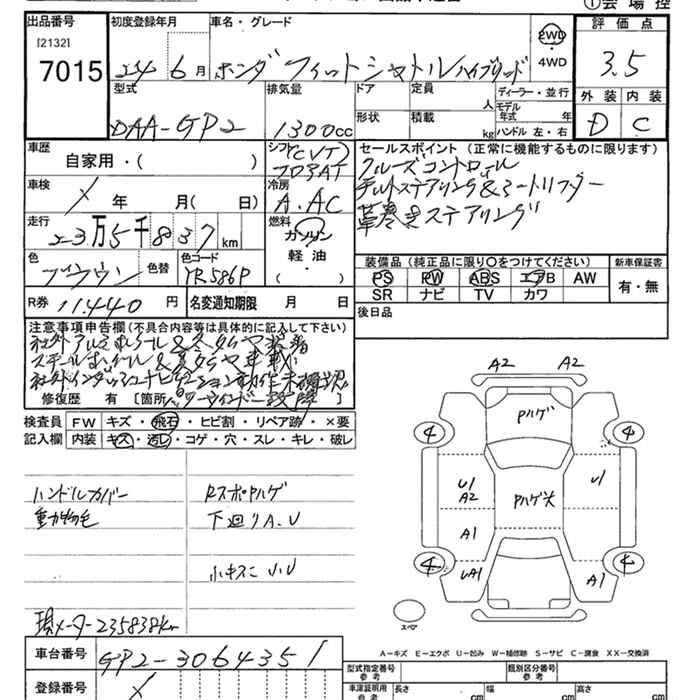 ①会場控
出品番号 初度登録年月 車名・グレード 評価点
[2132]
7015
24 6月 ホンダ フィットシャトルハイブリッド 2WD
・
4WD
3.5
型式 排気量 ドア 定員 人 ディーラー・並行
外装 内装
DAA-GP2 1300cc 形状 積載 kg モデル年式 年
ハンドル 左・右
D C
車歴 自家用・( ) シフト (CVT)
フロアAT
セールスポイント (正常に機能するものに限ります)
クルーズコントロール
チルトステアリング&シートリフター
革巻きステアリング
車検 × 年 月( 日) 冷房 A.AC
走行 23万5千837km 燃料 ガソリン
軽油
( )
色 ブラウン 色替 色コード YR586P
装備品 (純正品に限り○をつけてください) 新車保証書
PS PW ABS エアB AW 有・無
SR ナビ TV カワ
R券 11.440円 名変通知期限 月 日
後日品
注意事項申告欄(不具合内容等は具体的に記入して下さい)
社外アルミホイール&冬タイヤ装着
スチールホイール&夏タイヤ車載
社外インダッシュナビゲーション動作未確認
修復歴 有 [箇所 パワーウインドー故障 ]
検査員 FW キズ・飛石・ヒビ割・リペア跡・×要
記入欄 内装 キズ・汚レ・コゲ・穴・スレ・キレ・破レ
ハンドルカバー Rスポイハゲ
動物毛 下廻りA.U
小キズ 小U
現メーター235838km
A2 A2
Pハゲ
4 4
U1
A2
U1
Pハゲ大
A1
4 4
UA1 A1
スペア
A-キズ E-エクボ U-凹み W-補修跡 S-サビ C-腐食 XX-交換済
車台番号 GP2-3064351
登録番号 ×
型式指定番号 類別区分番号
車庫証明用参考 長さ cm 幅 cm 高さ cm